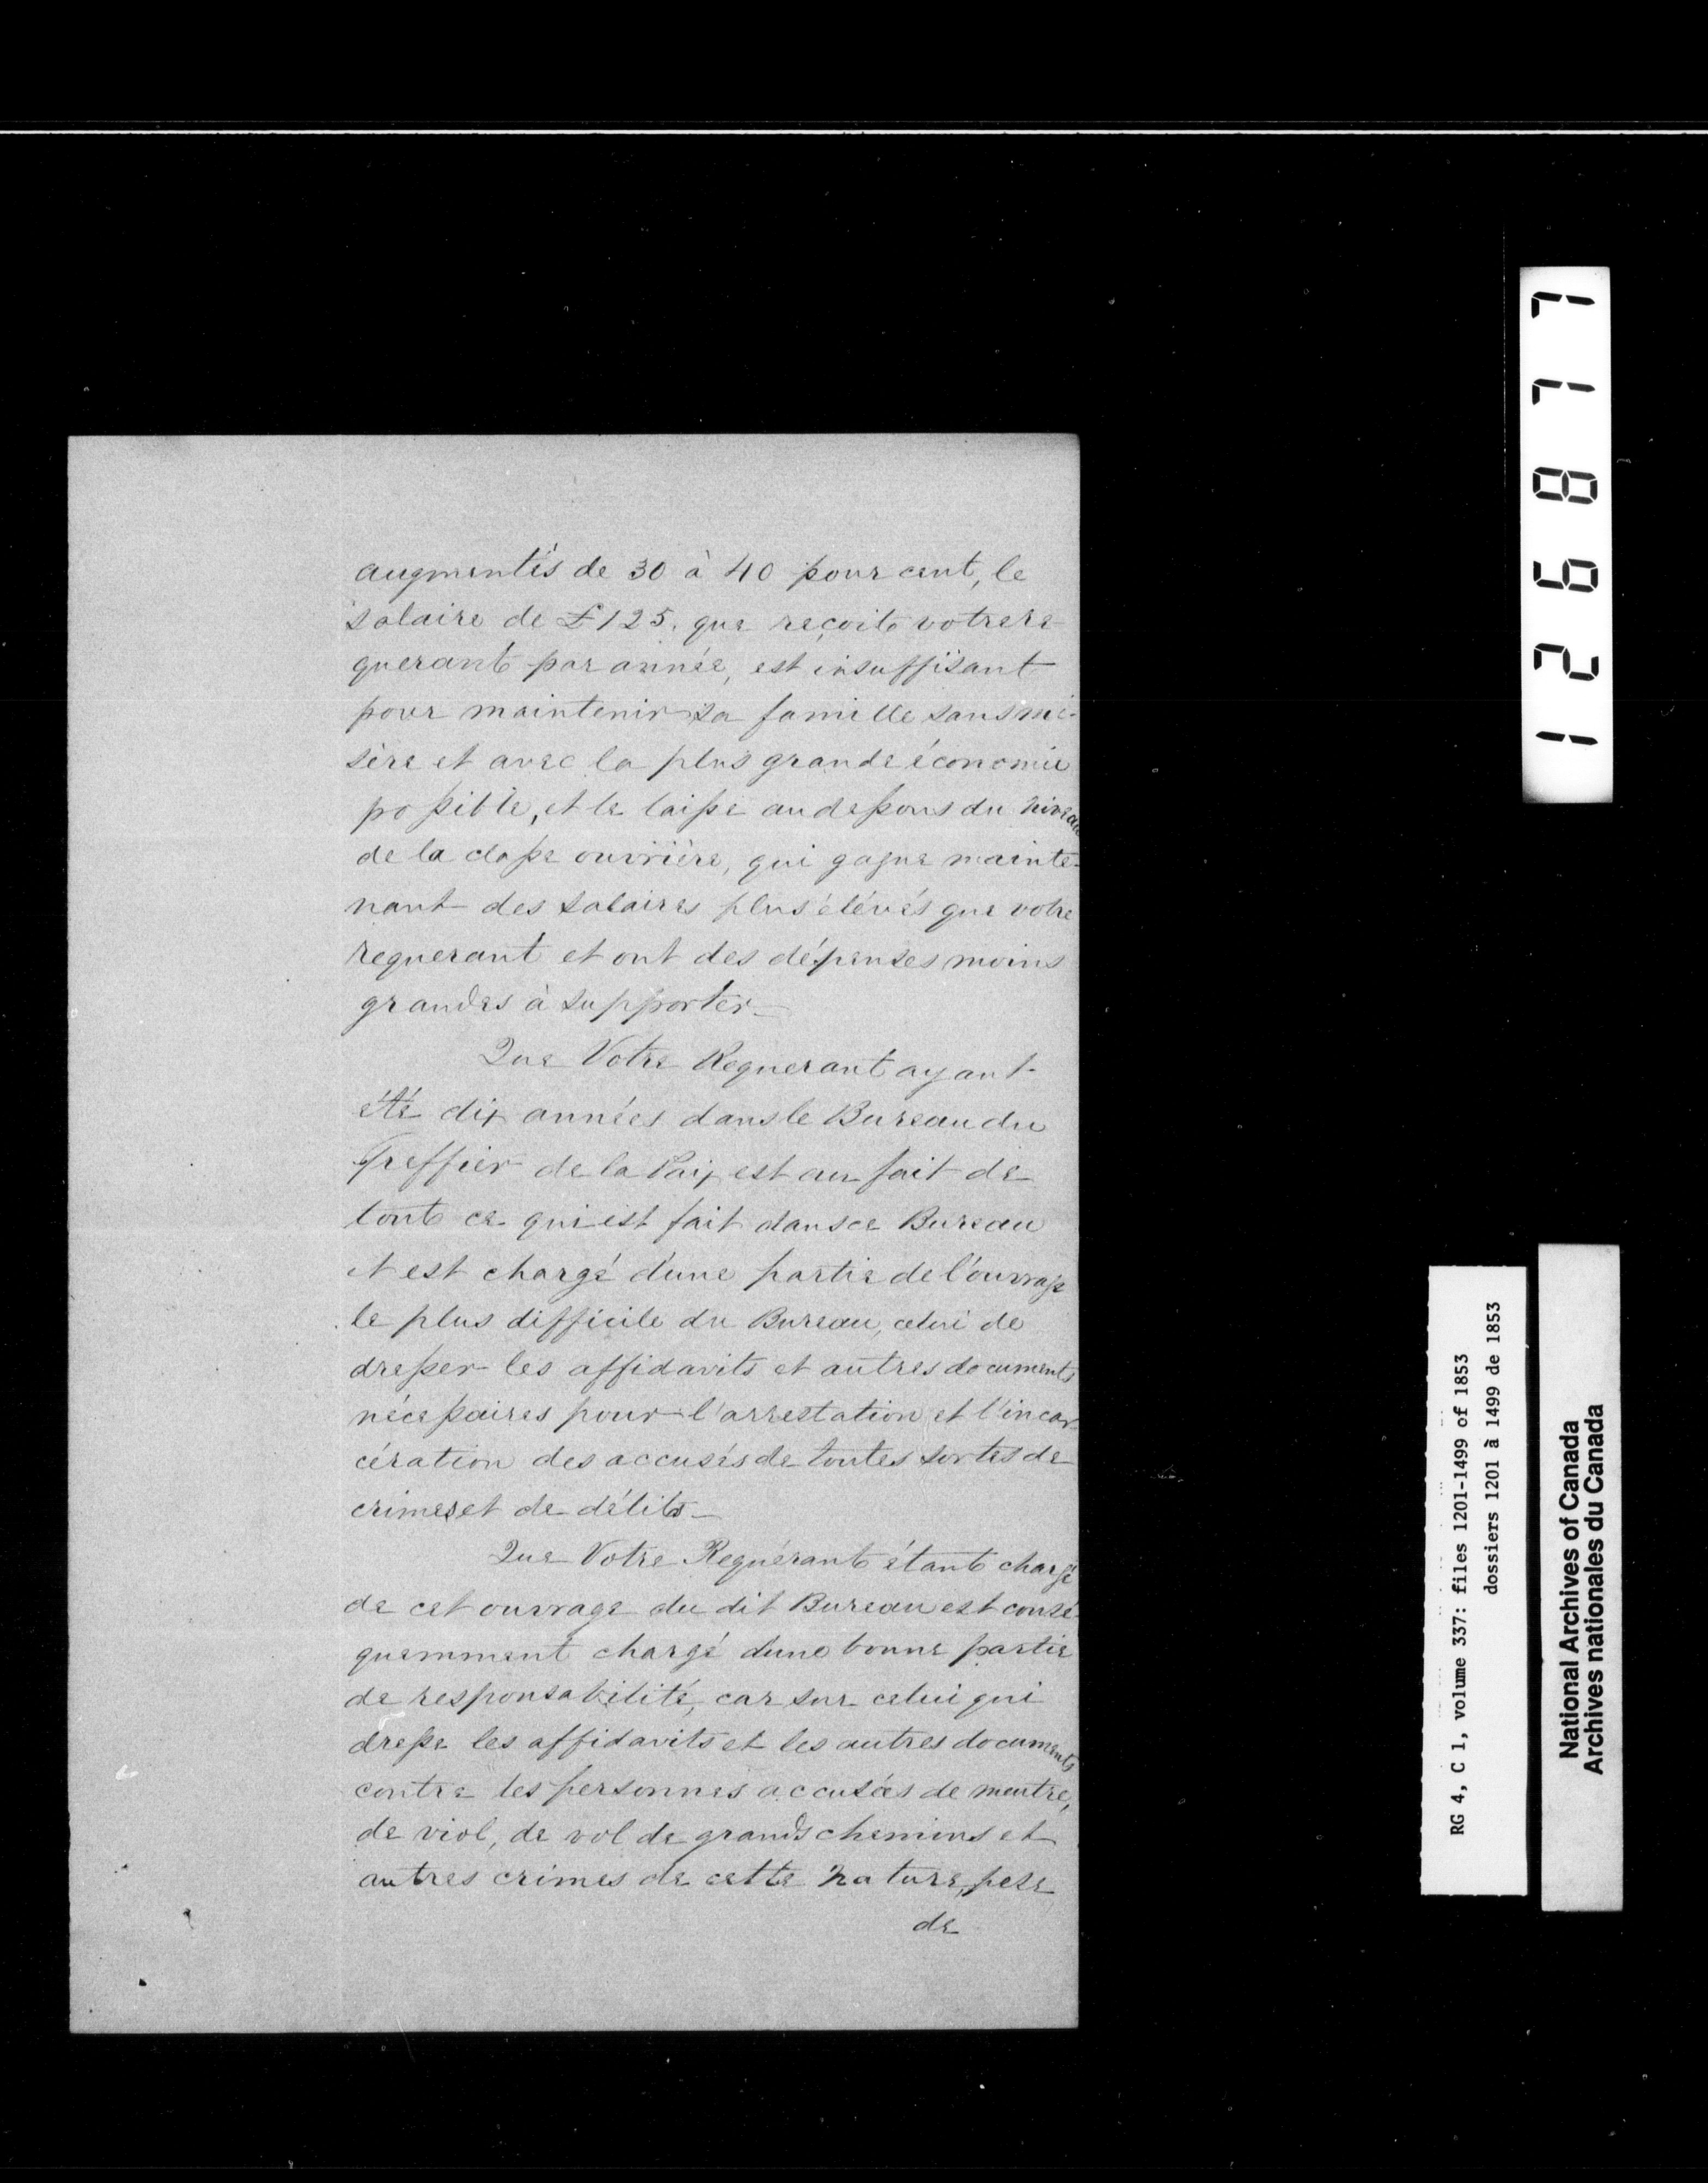 augmentés de 30 à 40 pour cent, le
salaire de £125. que reçoit votre re-
querant par année, est insuffisant
pour maintenir sa famille sans mi-
sère et avec la plus grande économie
possible, et le laisse au dessous du niveau
de la classe ouvrière, qui gagne mainte-
nant des salaires plus élévés que votre
requerant et ont des dépenses moins
grandes à supporter_
Que Votre Requerant ayant
été dix années dans le Bureau du
Greffier de la Paix est au fait de
tout ce qui est fait dans ce Bureau
et est chargé d'une partie de l'ouvrage
le plus difficile du Bureau, celui de
dresser les affidavits et autres documents
nécessaires pour l'arrestation et l'incar-
cération des accusés de toutes sortes de
crimes et de délits_
Que Votre Requérant étant chargé
de cet ouvrage du dit Bureau est consé-
quemment chargé d'une bonne partie
de responsabilité, car sur celui qui
dresse les affidavits et les autres documents
contre les personnes accusées de meutre,
de viol, de vol de grands chemins et
autres crimes de cette nature, pese
de
126877
RG 4, C 1, volume 337: files 1201-1499 of 1853
dossiers 1201 à 1499 de 1853
National Archives of Canada
Archives nationales du Canada